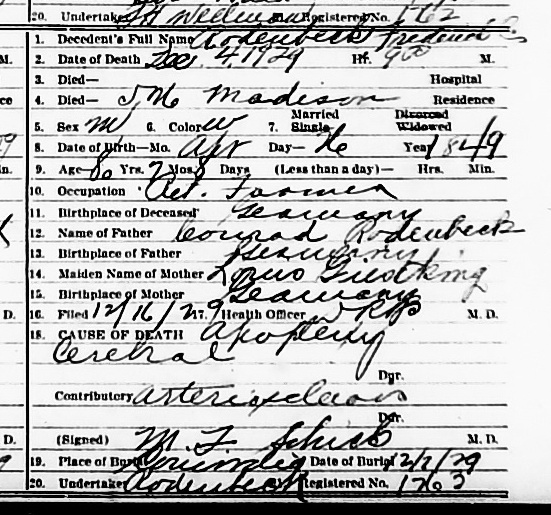 20. Undertaker Registered No. 1762
1. Decedent's Full Name Rodenbeck Frederick C.
2. Date of Death Dec. 4 1929 Hr. 900 M.
3. Died— Hospital
4. Died— Madison Residence
5. Sex M 6. Color W 7. Married Single Divorced Widowed
8. Date of Birth—Mo. Apr Day— 26 Year 1849
9. Age— 80 Yrs. 7 Mos. 8 Days (Less than a day)— Hrs. Min.
10. Occupation Ret. Farmer
11. Birthplace of Deceased Germany
12. Name of Father Conrad Rodenbeck
13. Birthplace of Father Germany
14. Maiden Name of Mother
15. Birthplace of Mother Germany
16. Filed 12/16/29 17. Health Officer M. D.
18. CAUSE OF DEATH Apoplexy
Cerebral
Dyr.
Contributory
Dyr.
(Signed) M. F. Schick M. D.
19. Place of Burial Date of Burial 12/7/29
20. Undertaker Rodenbeck Registered No. 1763